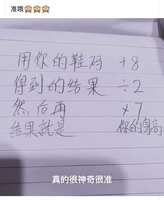 准哦
用你的鞋码 +8
得到的结果 ÷2
然后再 ×7
结果就是 你的身高
真的很神奇很准